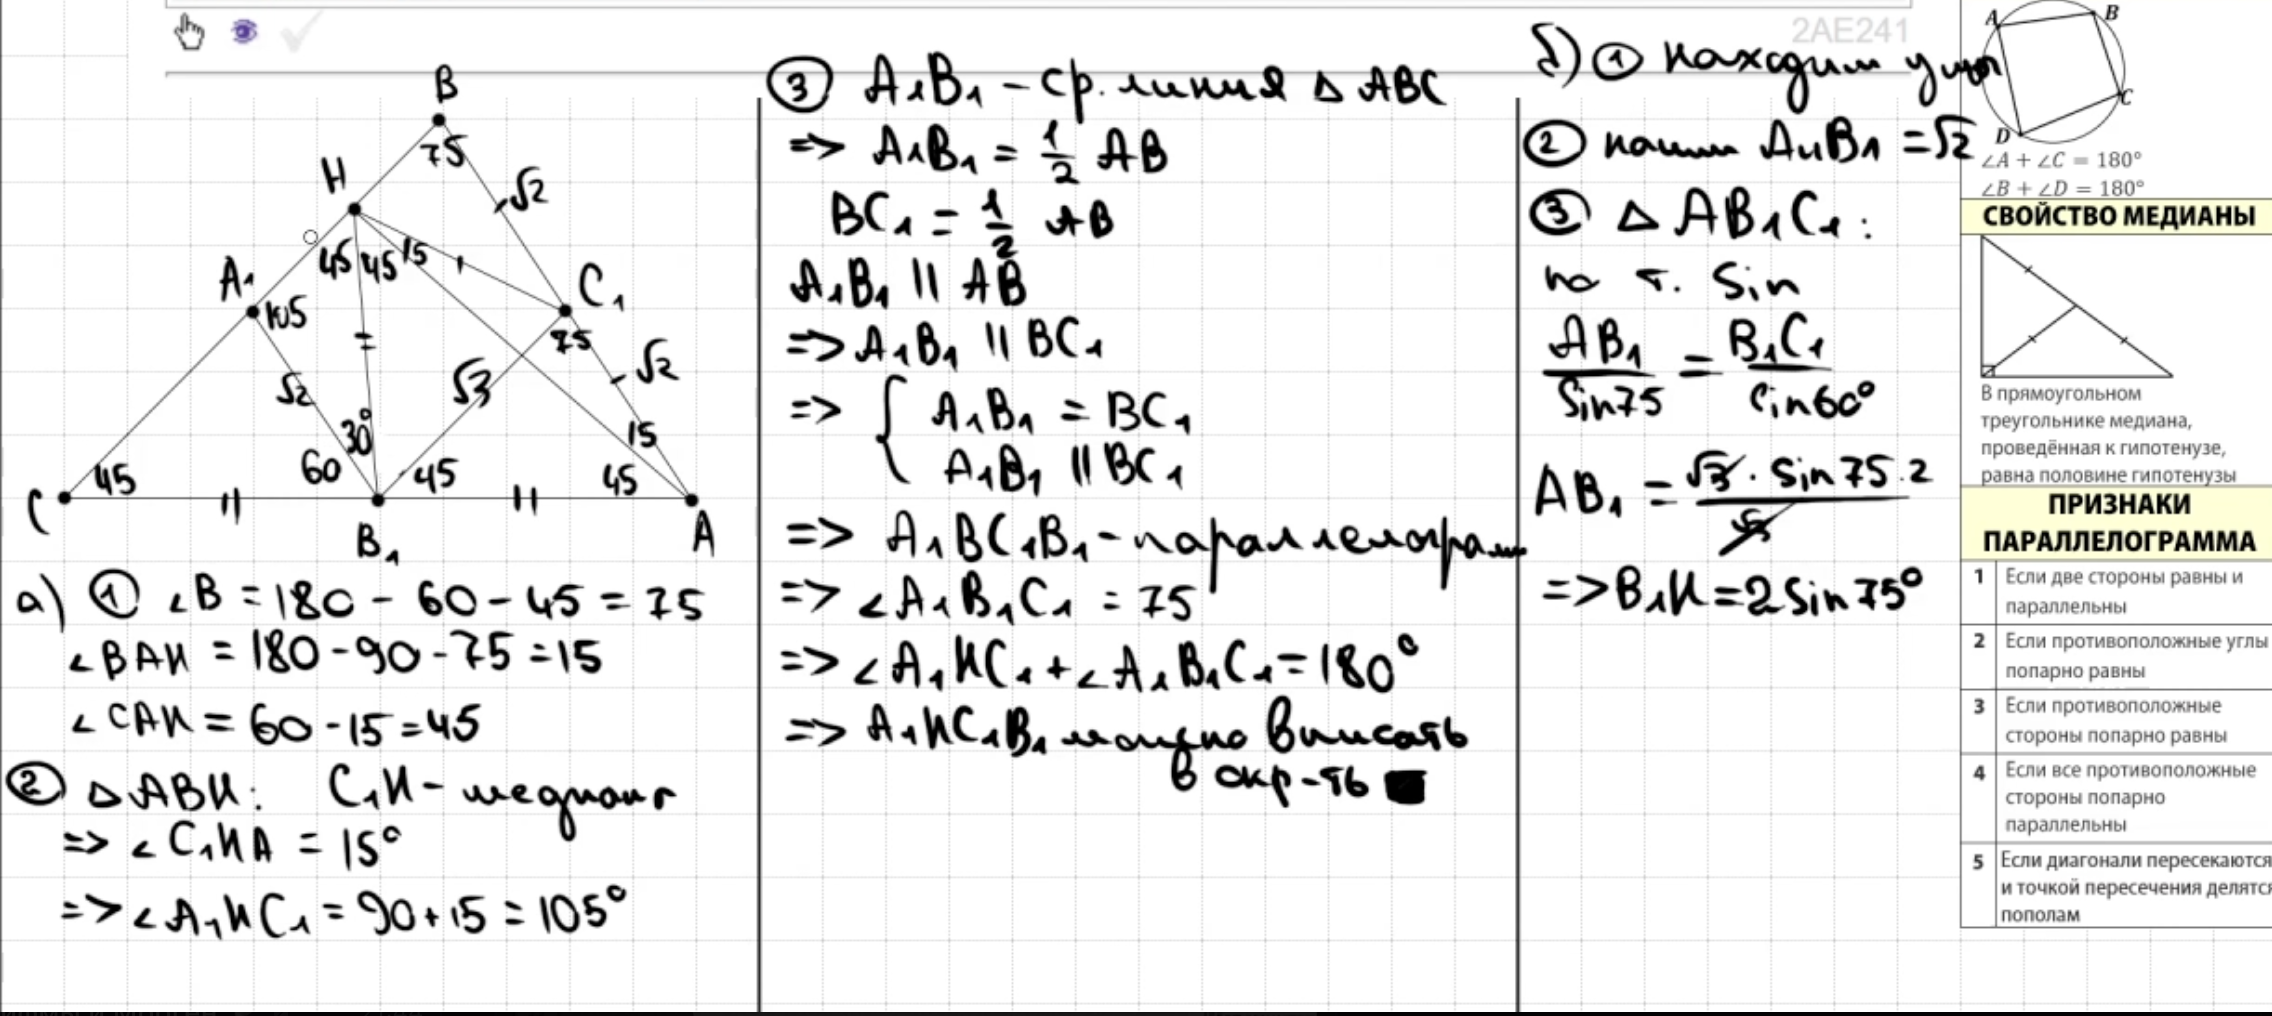 2AE241
B
75
H
√2
45
45
15
A₁
105
C₁
75
√2
√2
√3
30°
15
45
60
45
45
C
B₁
A
а) ① ∠B = 180 - 60 - 45 = 75
∠BAH = 180 - 90 - 75 = 15
∠CAH = 60 - 15 = 45
② △ABH: C₁H - медиана
=> ∠C₁HA = 15°
=> ∠A₁HC₁ = 90 + 15 = 105°
③ A₁B₁ - ср. линия △ ABC
=> A₁B₁ = 1/2 AB
BC₁ = 1/2 AB
A₁B₁ || AB
=> A₁B₁ || BC₁
=> { A₁B₁ = BC₁
A₁B₁ || BC₁
=> A₁BC₁B₁ - параллелограмм
=> ∠A₁B₁C₁ = 75
=> ∠A₁HC₁ + ∠A₁B₁C₁ = 180°
=> A₁HC₁B₁ можно вписать
в окр-ть
б) ① находим углы
② нашли A₁B₁ = √2
③ △ AB₁C₁:
по т. Sin
AB₁/Sin75 = B₁C₁/Sin60°
AB₁ = √3 · Sin75 · 2/√3
=> B₁H = 2Sin75°
A
B
C
D
∠A + ∠C = 180°
∠B + ∠D = 180°
СВОЙСТВО МЕДИАНЫ
В прямоугольном
треугольнике медиана,
проведённая к гипотенузе,
равна половине гипотенузы
ПРИЗНАКИ
ПАРАЛЛЕЛОГРАММА
1 Если две стороны равны и
параллельны
2 Если противоположные углы
попарно равны
3 Если противоположные
стороны попарно равны
4 Если все противоположные
стороны попарно
параллельны
5 Если диагонали пересекаются
и точкой пересечения делятся
пополам